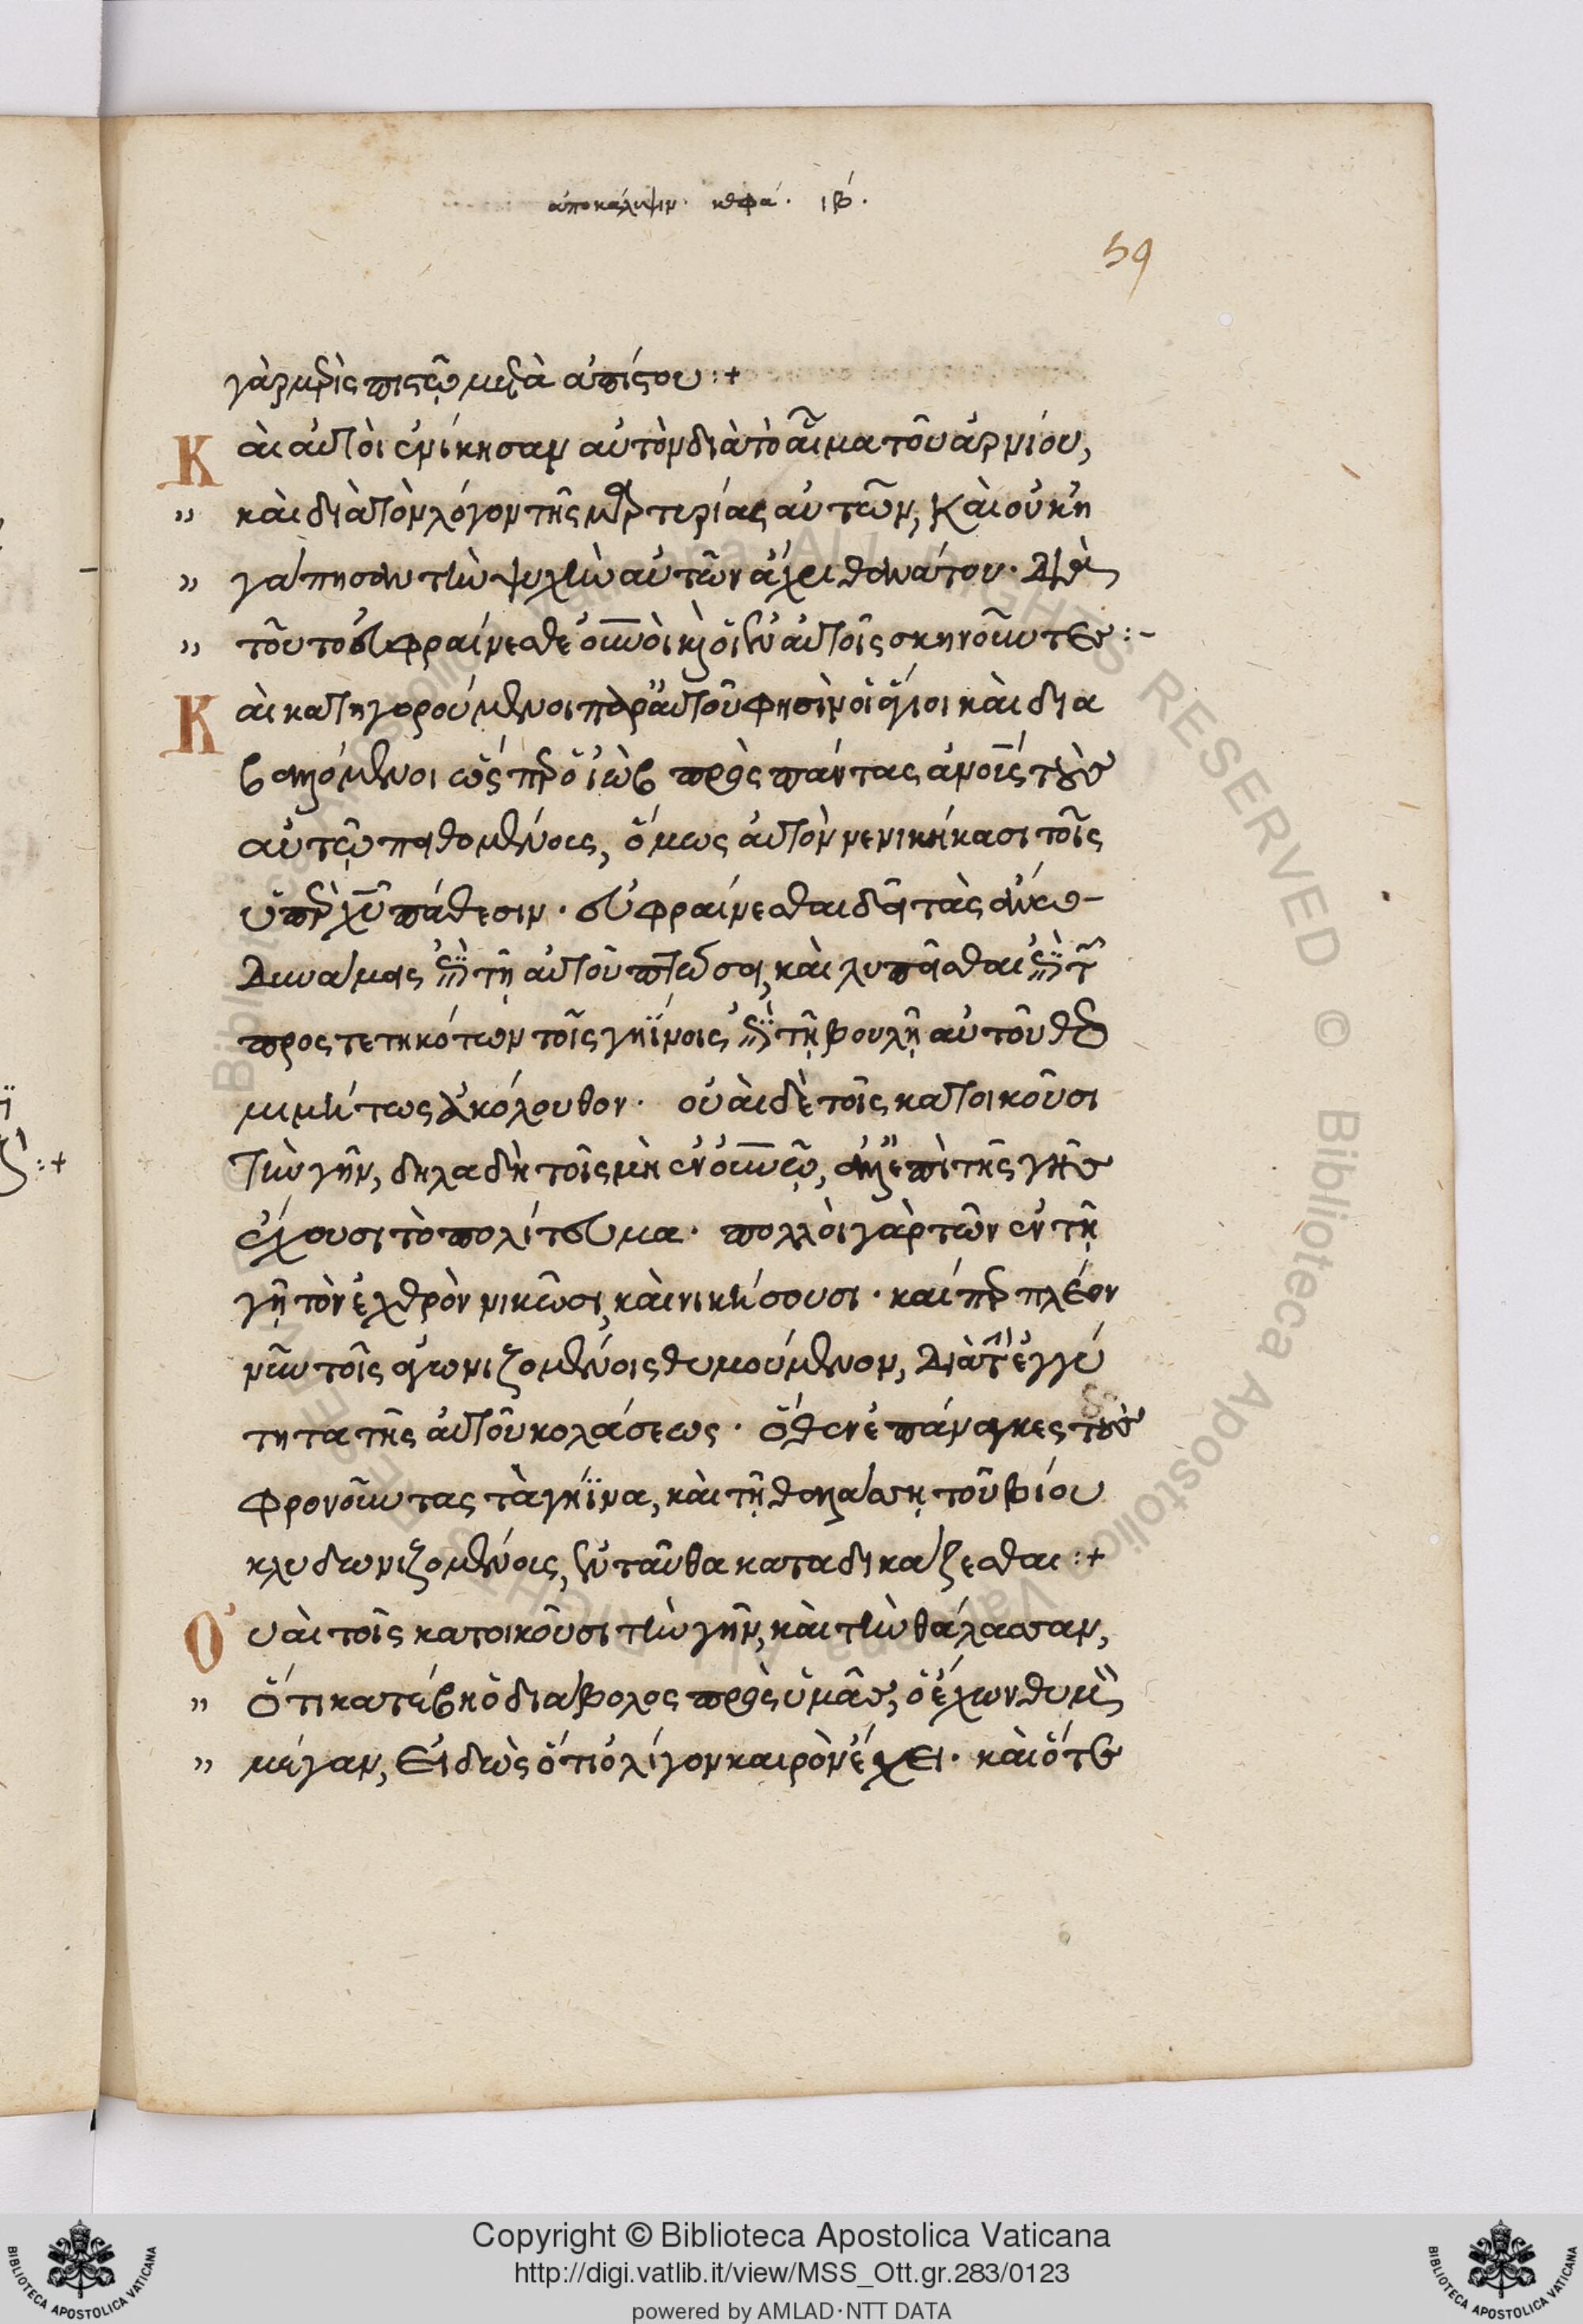 ἀποκάλυψιν. κεφα΄. ιβ΄.
59
γὰρ μερὶς πιστῷ μετὰ ἀπίστου :+
Καὶ αὐτοὶ ἐνίκησαν αὐτὸν διὰ τὸ αἷμα τοῦ ἀρνίου,
" καὶ διὰ τὸν λόγον τῆς μαρτυρίας αὐτῶν, Καὶ οὐκ ἠ
" γάπησαν τὴν ψυχὴν αὐτῶν ἄχρι θανάτου. Διὰ
" τοῦτο εὐφραίνεσθε οὐνοὶ καὶ οἱ ἐν αὐτοῖς σκηνοῦντες :-
Καὶ κατηγορούμενοι παρ' αὐτοῦ φησὶν οἱ ἅγιοι καὶ δια
βαλλόμενοι ὥσπερ ὁ ἰὼβ πρὸς πάντας ἀνοις τοὺς
αὐτῷ πειθομένοις, ὅμως αὐτὸν νενικήκασι τοῖς
ὑπὲρ χυ πάθεσιν. εὐφραίνεσθαι δὲ τὰς ἄνω
Δυνάμεις ἐπὶ τῇ αὐτοῦ πτώσει, καὶ λυπεῖσθαι ἐπὶ τῶν
προστετηκότων τοῖς γηΐνοις ἐπὶ τῇ βουλῇ αὐτοῦ θεο
μιμήτως ἀκόλουθον. οὐαὶ δὲ τοῖς κατοικοῦσι
τὴν γῆν, δηλαδὴ τοῖς μὴ ἐν οὐνῷ, ἀλλ' ἐπὶ τῆς γῆς
ἔχουσι τὸ πολίτευμα. πολλοὶ γὰρ τῶν ἐν τῇ
γῇ τὸν ἐχθρὸν νικῶσι, καὶ νικήσουσι. καίπερ πλέον
νῦν τοῖς ἀγωνιζομένοις θυμούμενον, Διὰ τὴν ἐγγύ
τητα τῆς αὐτοῦ κολάσεως. ὅθεν ἐπάναγκες τοὺς
φρονοῦντας τὰ γήϊνα, καὶ τῇ θαλάσσῃ τοῦ βίου
κλυδωνιζομένοις, ἐνταῦθα καταδικάζεσθαι :+
Οὐαὶ τοῖς κατοικοῦσι τὴν γῆν, καὶ τὴν θάλασσαν,
" ὅτι κατέβη ὁ διάβολος πρὸς ὑμᾶς, ὁ ἔχων θυμὸν
" μέγαν, Εἰδὼς ὅτι ὀλίγον καιρὸν ἔχει. καὶ ὅτε
Copyright © Biblioteca Apostolica Vaticana
http://digi.vatlib.it/view/MSS_Ott.gr.283/0123
powered by AMLAD·NTT DATA